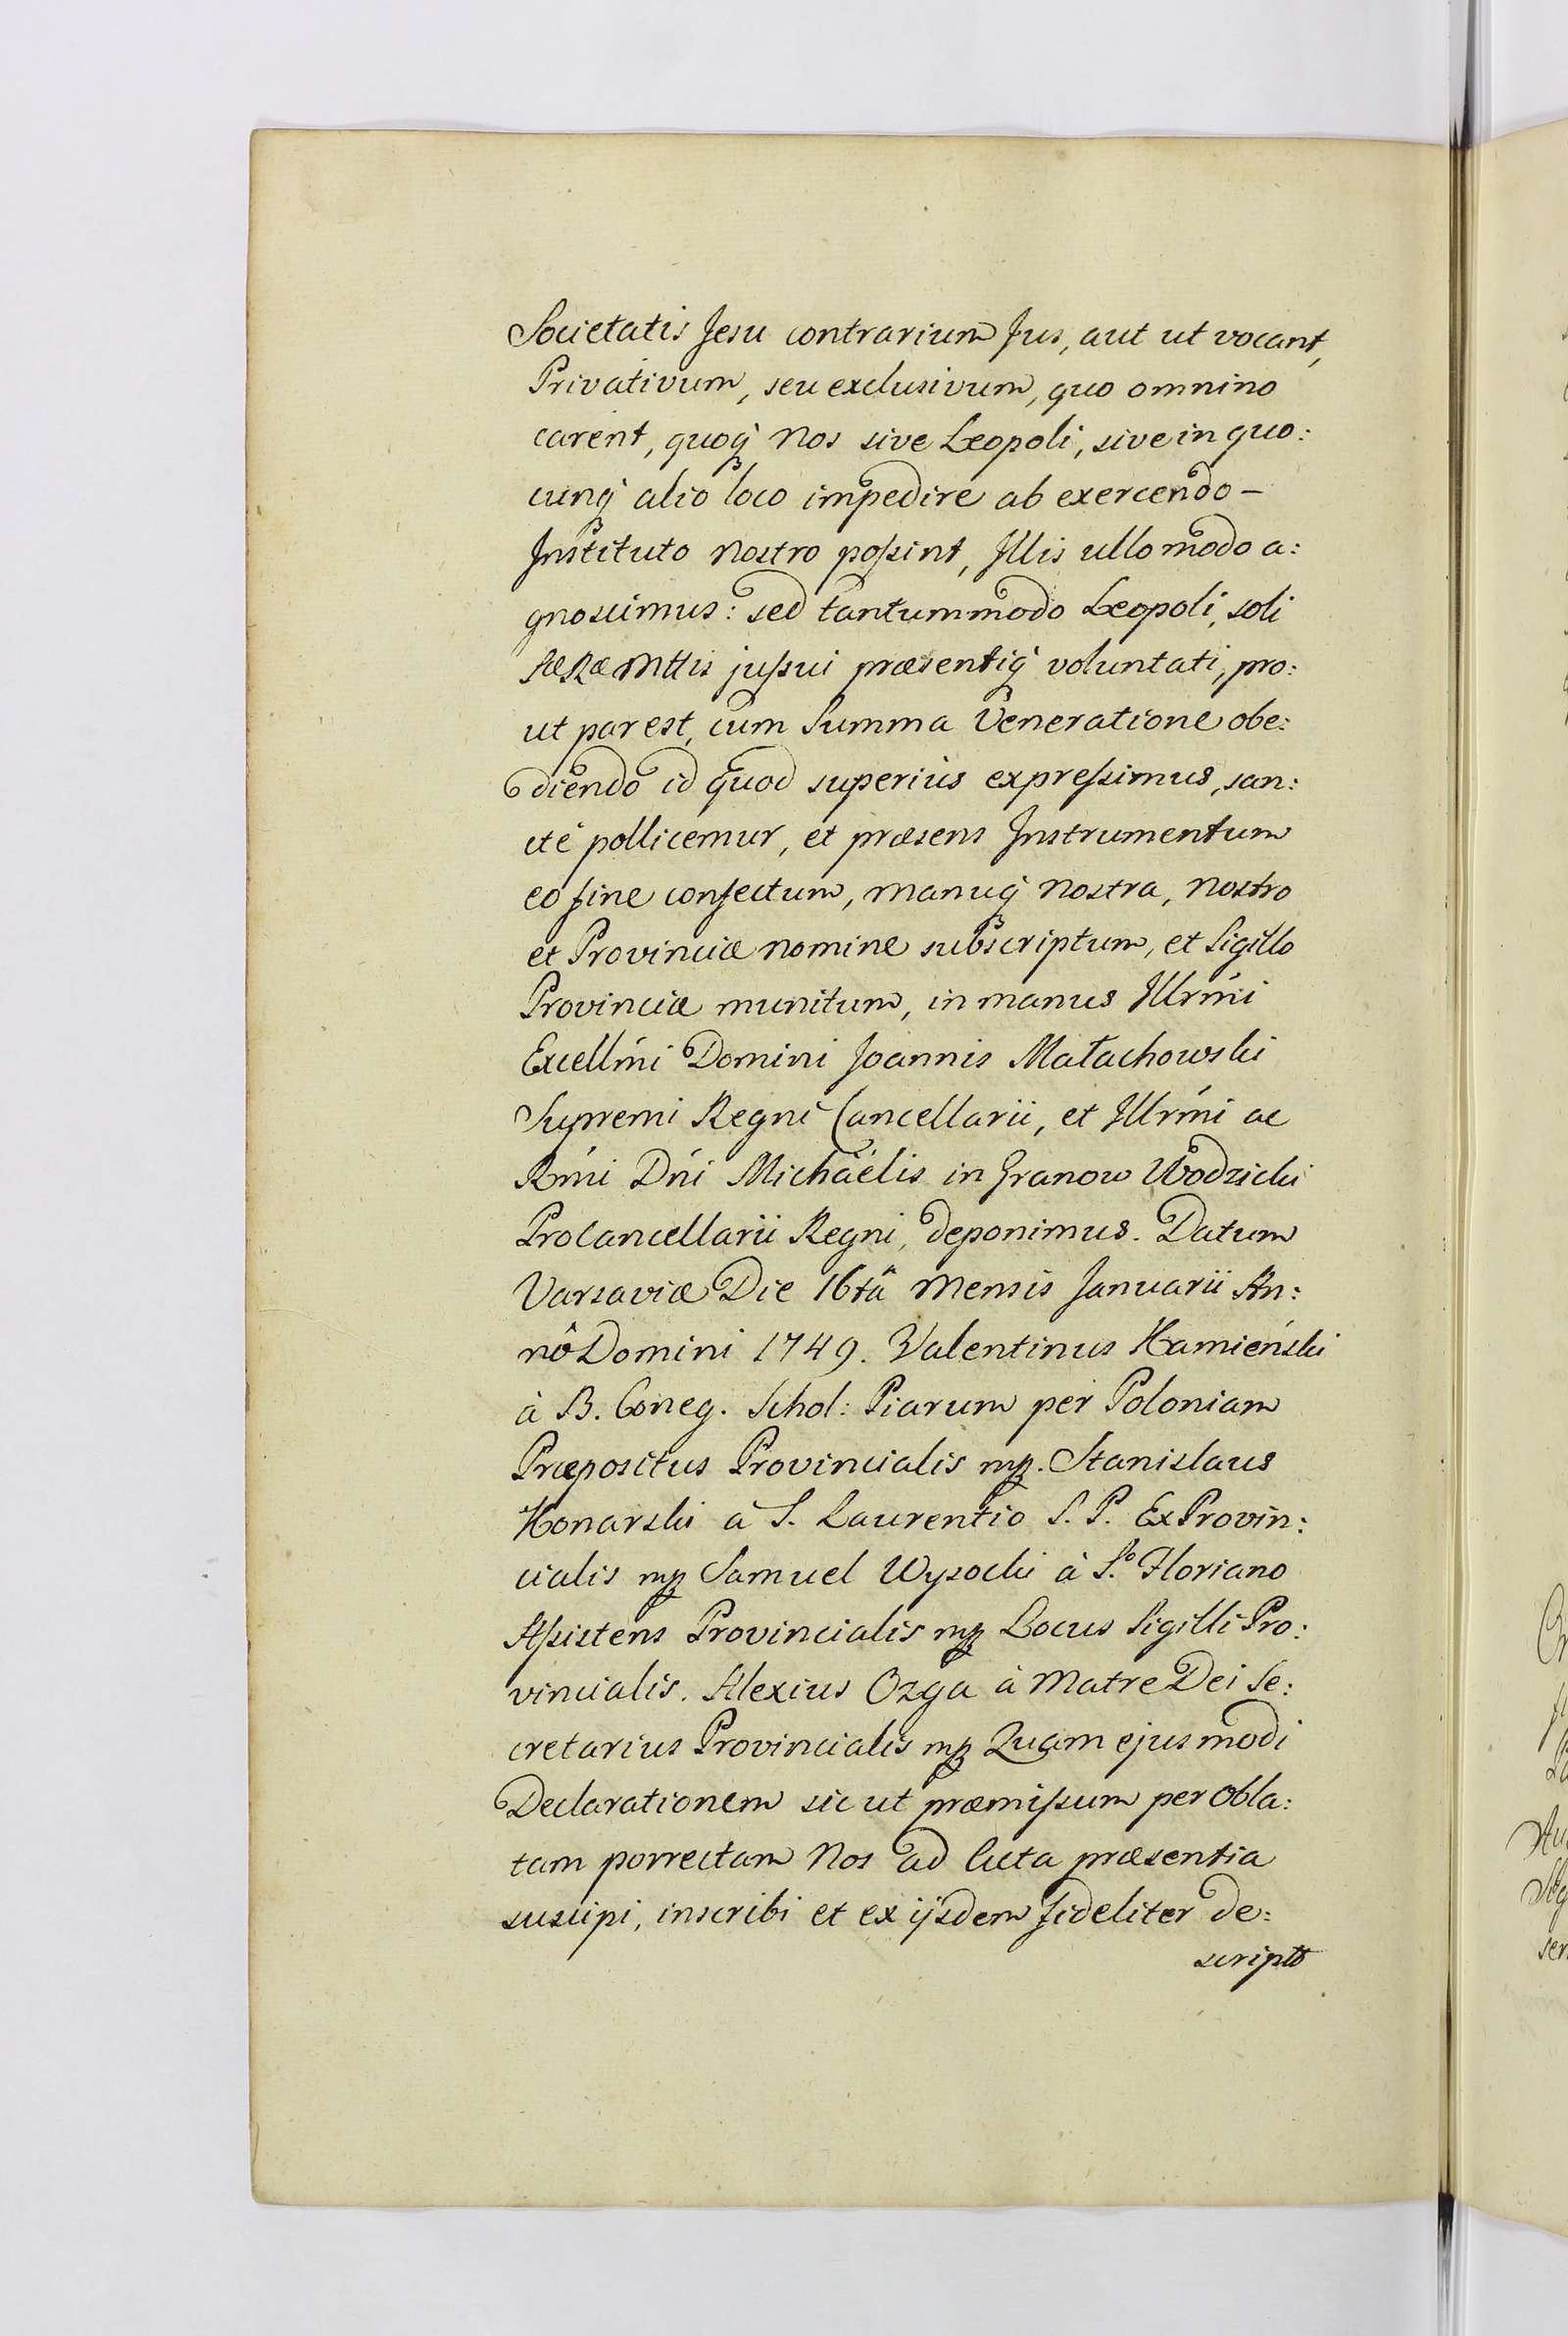 Societatis Jesu contrarium Jus, aut ut vocant,
Privativum, seu exclusivum, quo omnino
carent, quoq́ Nos sive Leopoli, sive in quo:
cunq́ alio loco impedire ab exercendo -
Instituto Nostro poſsint, Illis ullo modo a:
gnoscimus: sed tantummodo Leopoli, soli
SæRæMttis juſsui præsentiq́ voluntati, pro:
ut par est, cum Summa Veneratione obe:
diendo id quod superiús expreſsimus, san:
cté pollicemur, et præsens Instrumentum
eo fine confectum, manuq́ nostra, nostro
et Provinciæ nomine subscriptum, et Sigillo
Provinciæ munitum, in manus Illrḿi
Excellḿi Domini Joannis Małachowski
Supremi Regni Cancellarii, et Illrḿi ac
Rḿi Dńi Michäelis in Granow Wodzicki
Procancellarii Regni, deponimus. Datum
Varsaviæ Die 16tâ Mensis Januarii An:
nô Domini 1749. Valentinus Kamieński
à B. Coneg. Schol: Piarum per Poloniam
Præpositus Provincialis mp. Stanislaus
Konarski à S. Laurentio S. P. Ex Provin:
cialis mp Samuel Wysocki à S.º Floriano
Aſsistens Provincialis mp Locus Sigilli Pro:
vincialis. Alexius Ozga à Matre Dei Se:
cretarius Provincialis mp Quam ejusmodi
Declarationem sic ut præmiſsum per Obla:
tam porrectam Nos ad Acta præsentia
suscipi, inscribi et ex ijsdem fideliter de:
scripto